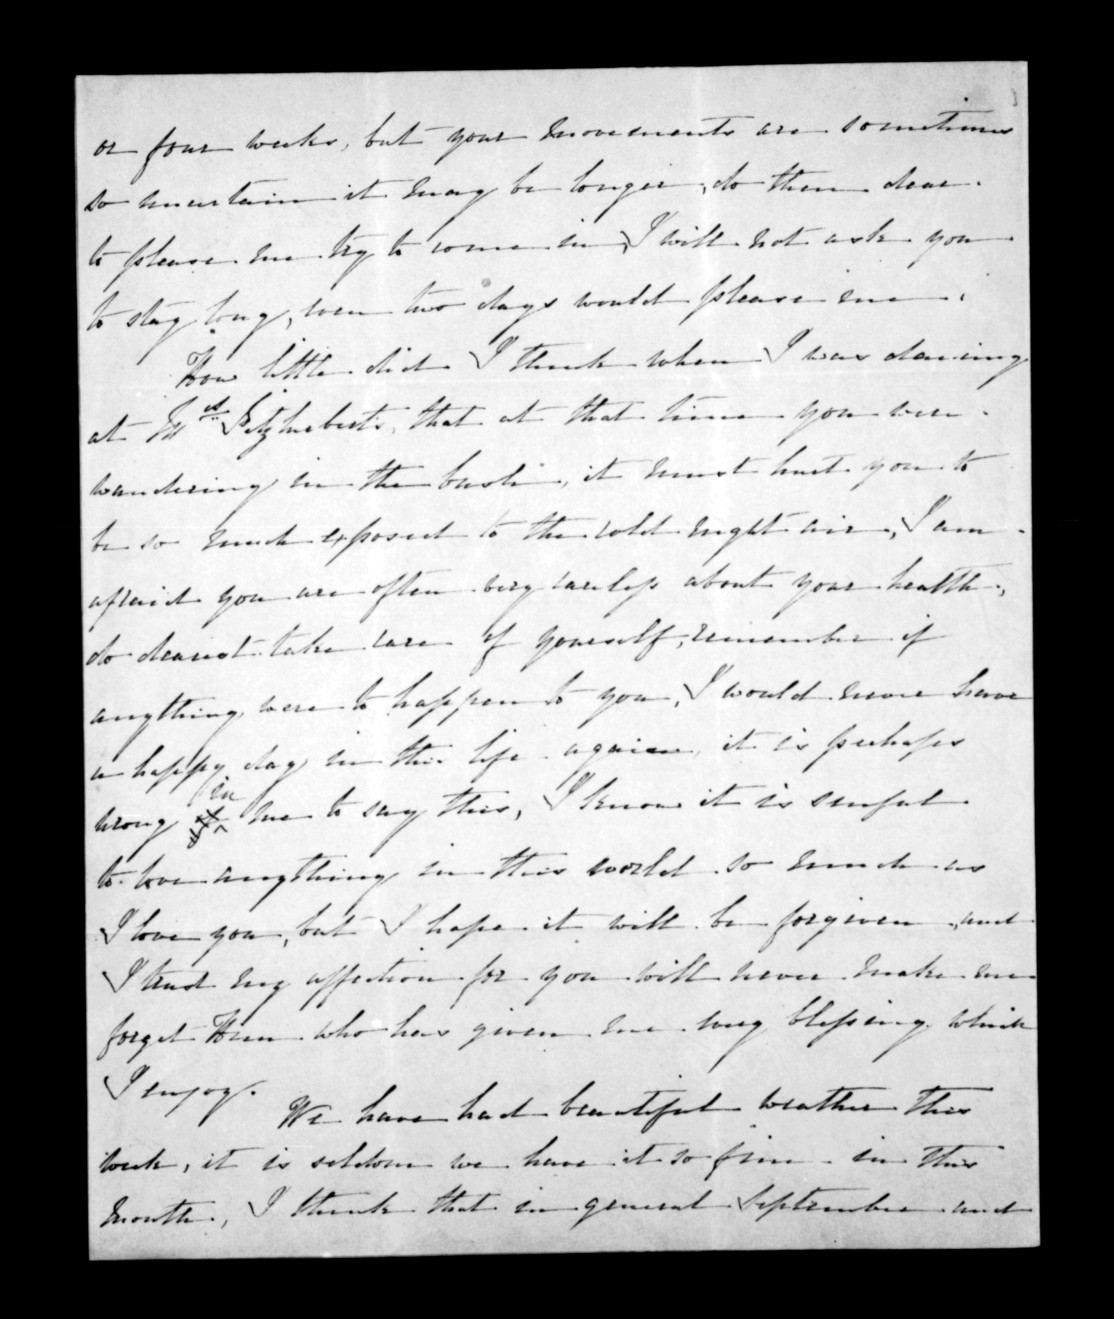 or four weeks, but your movements are sometimes
so uncertain it may be longer, do then dear
to please me try to come in, I will not ask you
to stay long, even two days would please me.
How little did I think when I was dancing
at Fitzherberts, that at that time you were
wandering in the bush, it must hurt you to
be so much exposed to the cold night air, I am
afraid you are often very careless about your health,
do dearest take care of yourself, remember if
anything were to happen to you, I would never have
a happy day in this life again, it is perhaps
wrong in me to say this, I know it is sinful
to love anything in this world so much as
I love you, but I hope it will be forgiven and
I trust my affection for you will never make me
forget Him who has given me every blessing which
I enjoy.
We have had beautiful weather this
week, it is seldom we have it so fine in this
month, I think that in general September and